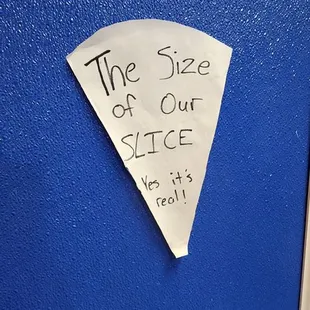 The Size
of Our
SLICE
Yes it's
real!